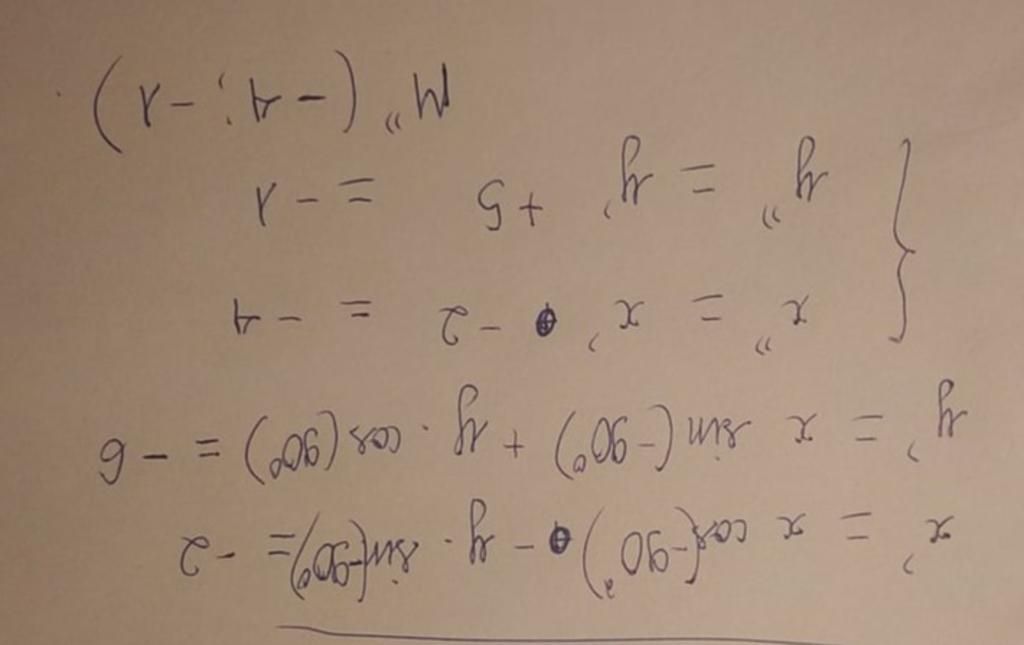 x' = x cos(-90°) - y · sin(-90°) = -2
y' = x sin(-90°) + y · cos(90°) = -6
x" = x' -2 = -4
y" = y' +5 = -1
M" (-4; -1)